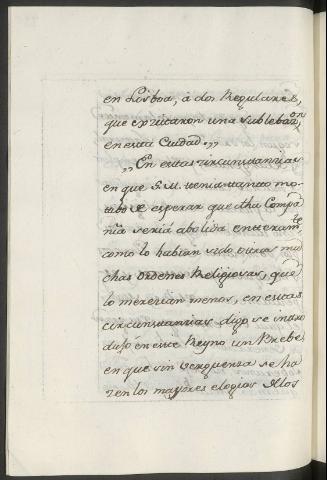 en Lisboa, a dos Regulares,
que exzitaron una sublebaz.on
en esta Ciudad.,,
,,En estas circunstanzias
en que S.M. tenia tanto mo-
tibo de esperar que dha Compa-
ñia seria abolida enteram.te
como lo habian sido otras mu-
chas ordenes Religiosas, que
lo merezian menos, en estas
circunstanzias digo se intro
dujo en este Reyno un Brebe,
en que sin verguenza se ha-
zen los mayores elogios de los